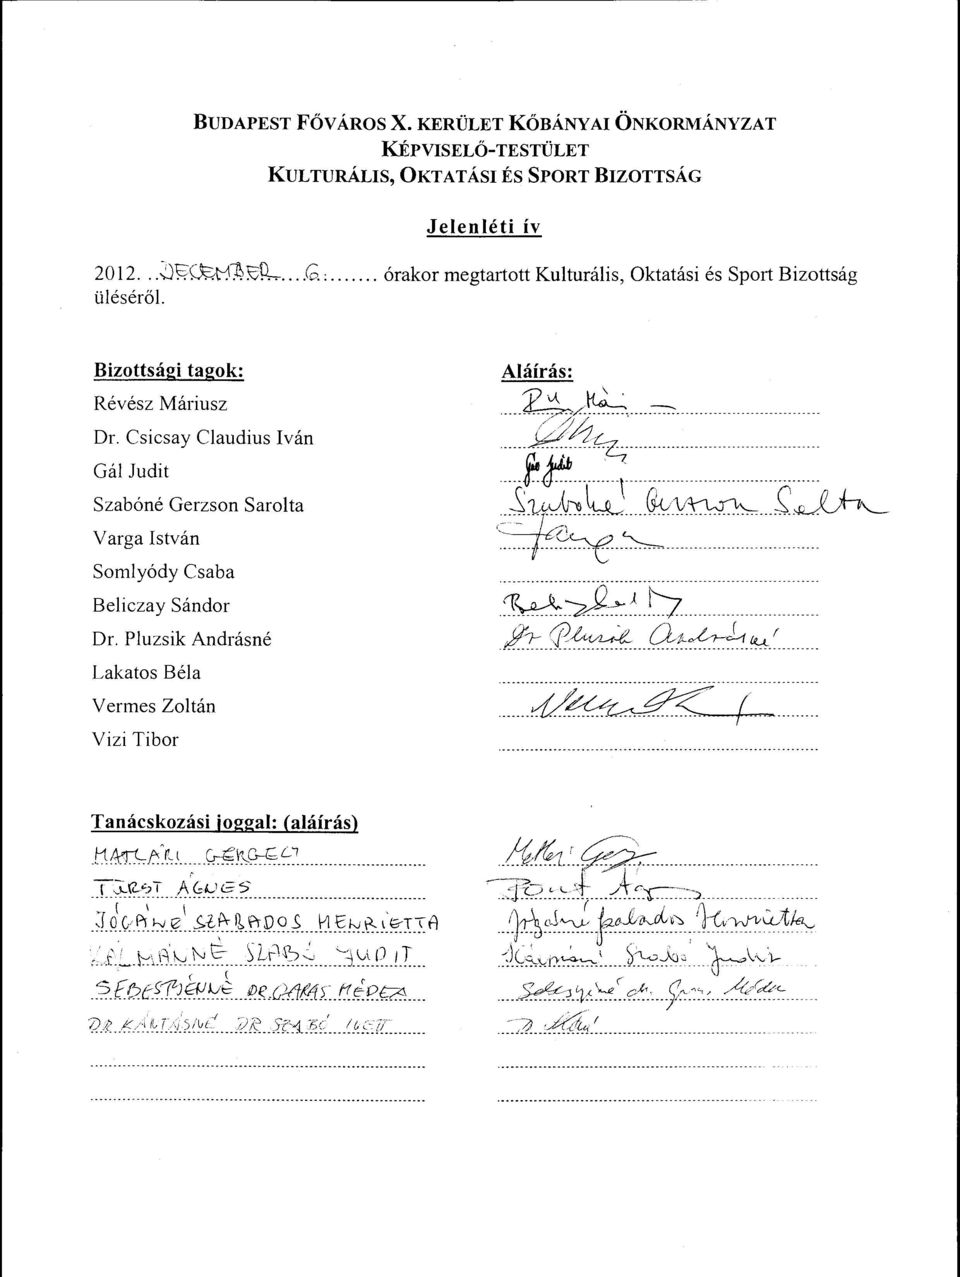 BUDAPEST FŐVÁROS X. KERÜLET KŐBÁNYAI ÖNKORMÁNYZAT
KÉPVISELŐ-TESTÜLET
KULTURÁLIS, OKTATÁSI ÉS SPORT BIZOTTSÁG
Jelenléti ív
2012. ..DECEMBER....6......... órakor megtartott Kulturális, Oktatási és Sport Bizottság
üléséről.
Bizottsági tagok: Aláírás:
Révész Máriusz
Dr. Csicsay Claudius Iván
Gál Judit Gál Judit
Szabóné Gerzson Sarolta Szabóné Gerzson Sarolta
Varga István Varga
Somlyódy Csaba
Beliczay Sándor
Dr. Pluzsik Andrásné Dr Pluzsik Andrásné
Lakatos Béla
Vermes Zoltán
Vizi Tibor
Tanácskozási joggal: (aláírás)
MATLÁRI GERGELY
TÜRST ÁGNES
JÓGÁNÉ SZABADOS HENRIETTA Jógáné Szabados Henrietta
KÁLMÁNNÉ SZABÓ JUDIT Szabó Judit
SEBESTYÉNNÉ DR. GARAS MÉDEA
DR. KÁNTÁSNÉ DR SZABÓ IVETT